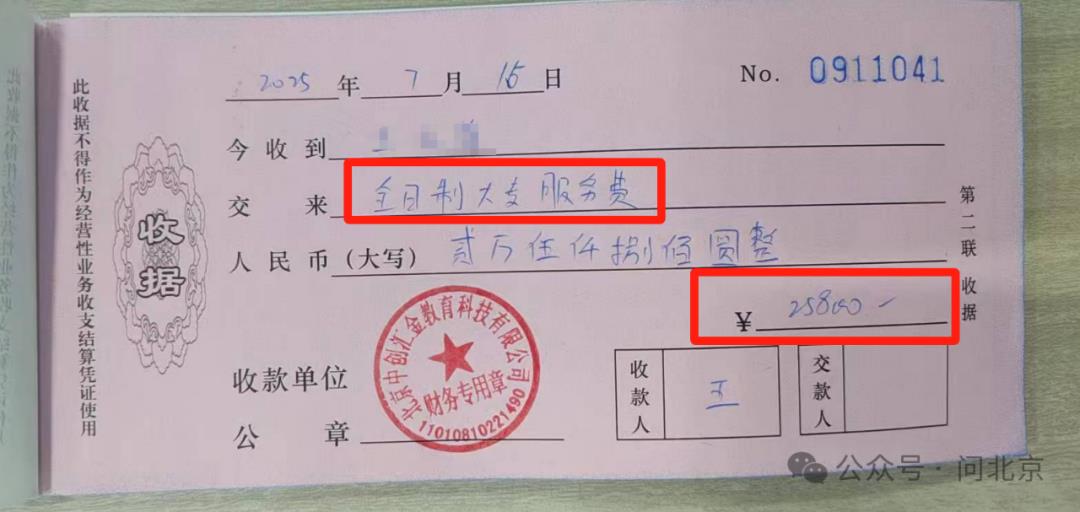 此收据不得作为经营性业务收支结算凭证使用
收据
2025年7月15日
No. 0911041
今收到
交来 全日制大专服务费
人民币(大写)贰万伍仟捌佰圆整
¥ 25800-
第二联 收据
收款单位
公章
北京中创汇金教育科技有限公司
财务专用章
11010810221490
收款人 王
交款人
公众号·问北京